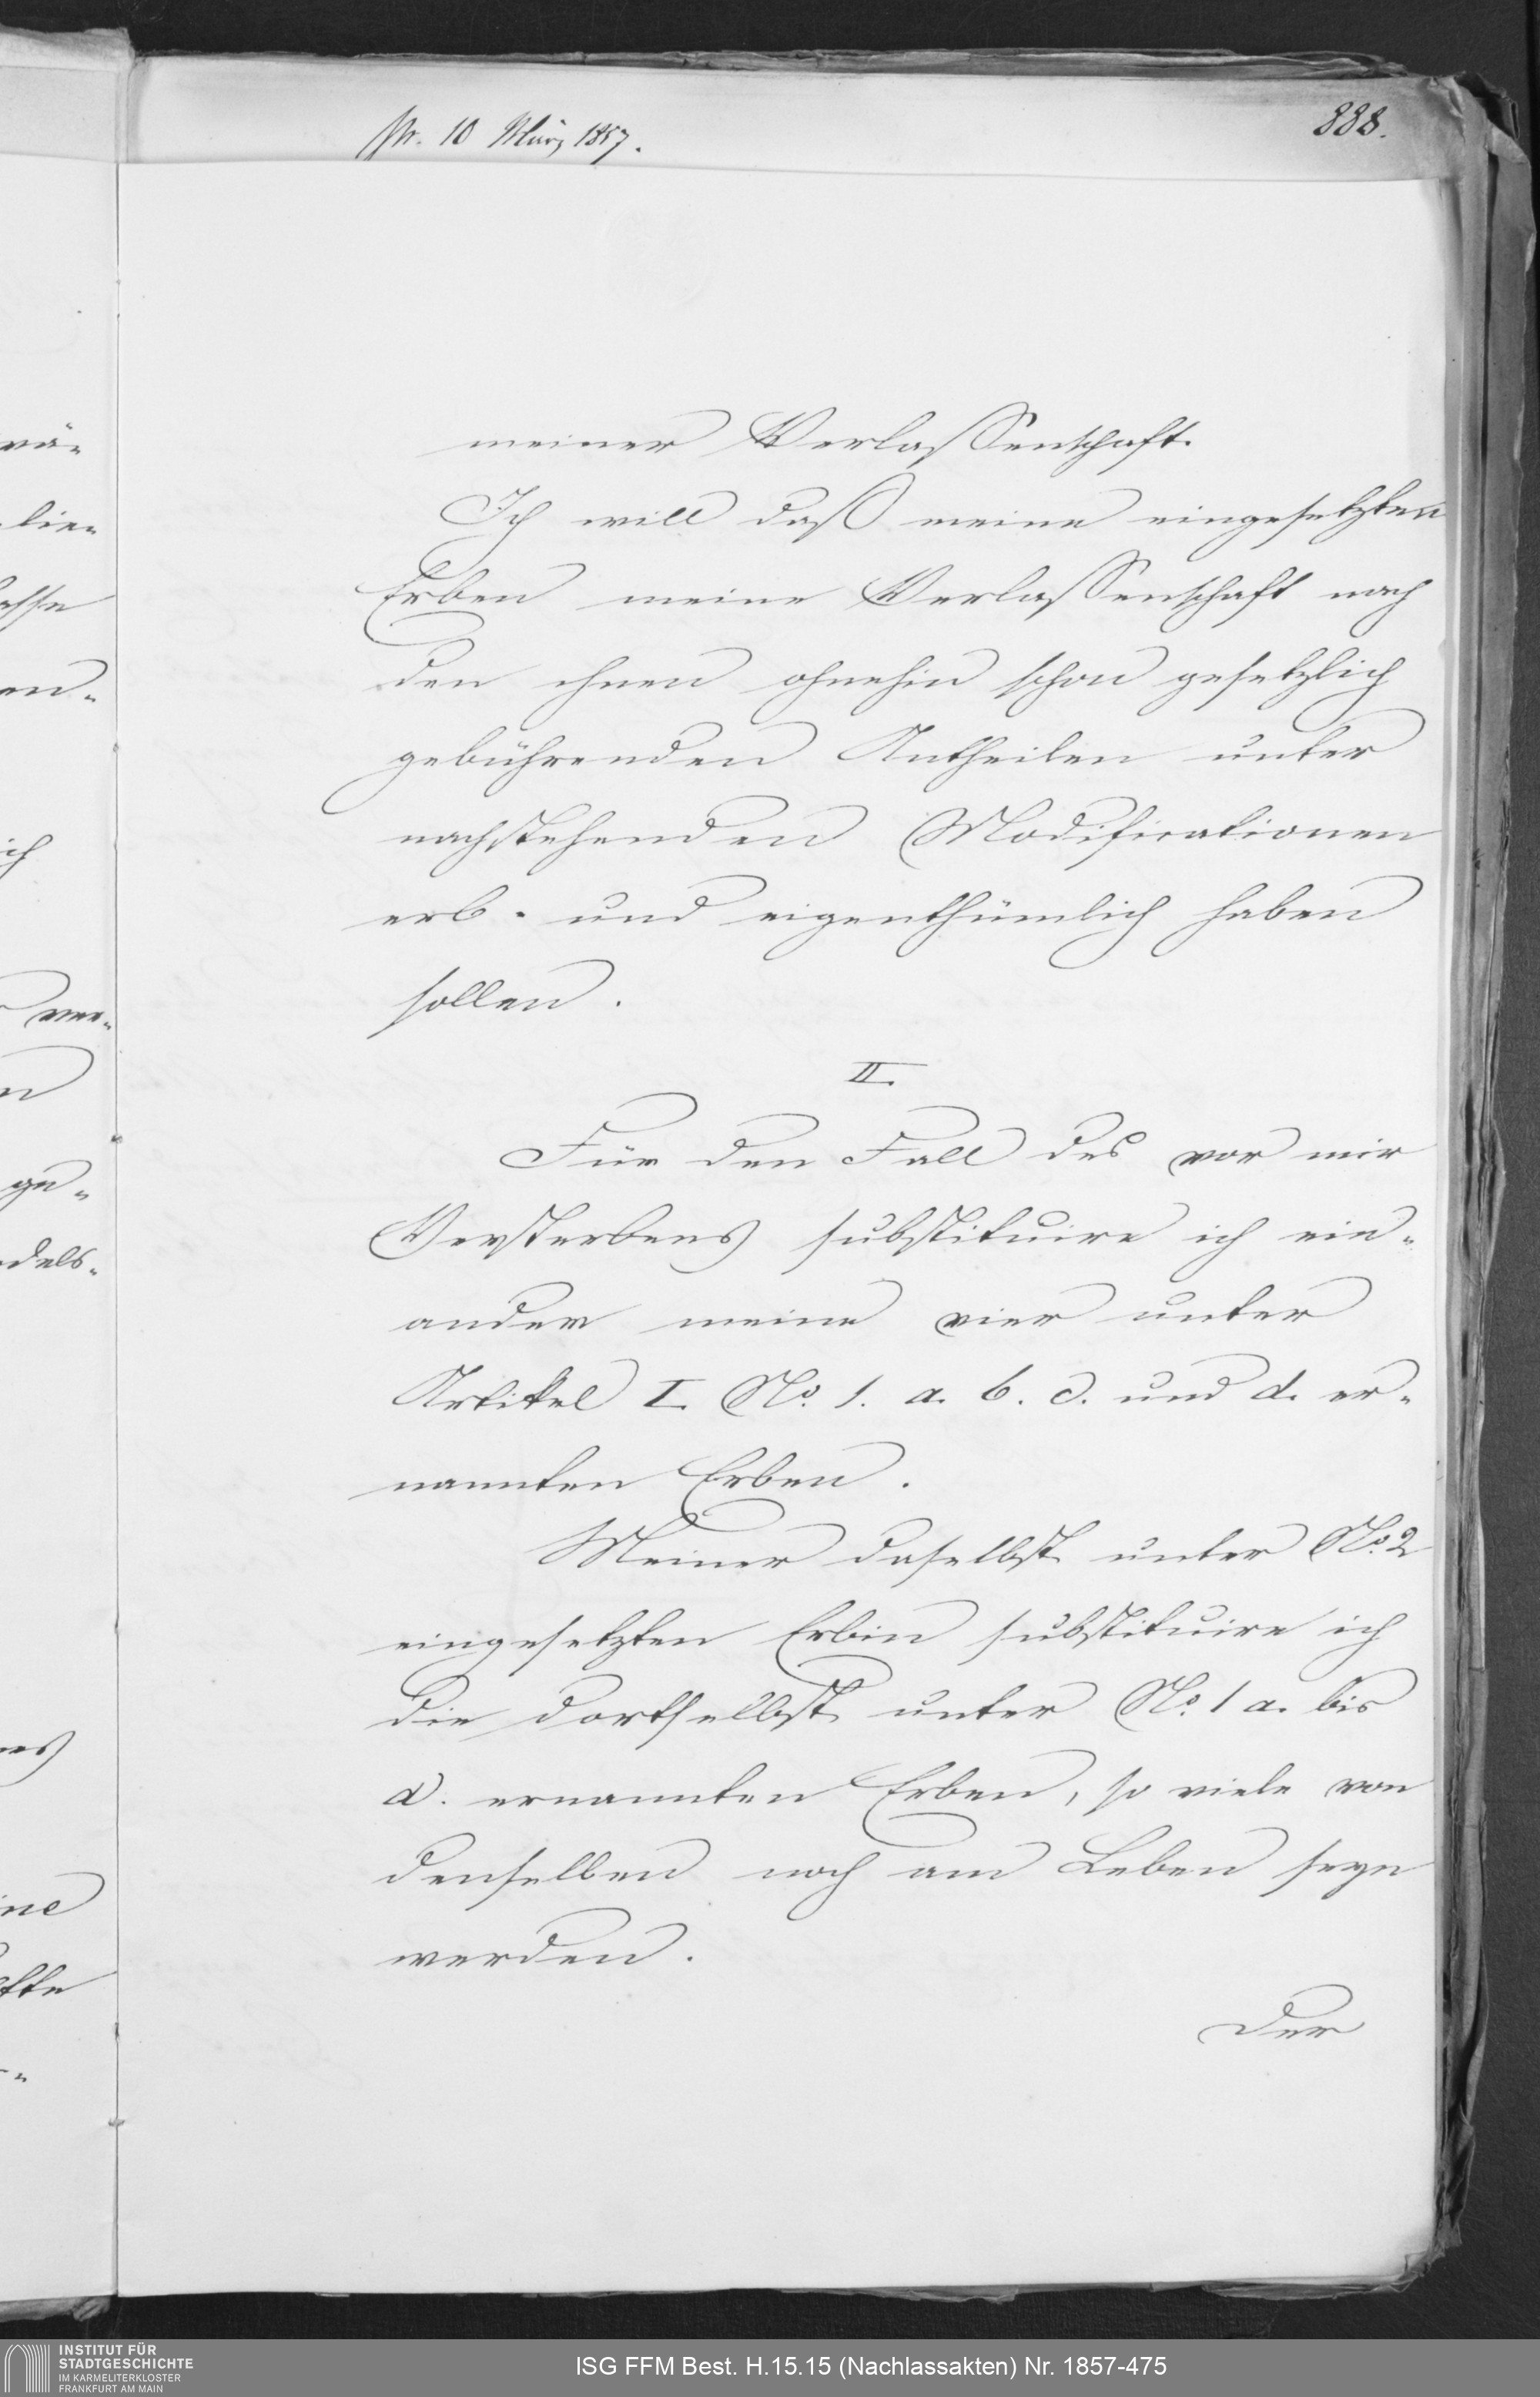 Pr. 10 März 1857.
888.
meiner Verlassenschaft.
Ich will daß meine eingesetzten
Erben meine Verlassenschaft nach
den ihnen ohnehin schon gesetzlich
gebührenden Antheilen unter
nachstehenden Modificationen
erb- und eigenthümlich haben
sollen.
II.
Für den Fall des vor mir
Versterbens substituire ich ein-
ander meine vier unter
Artikel I. No. 1. a. b. c. und d. er-
nannten Erben.
Meiner daselbst unter No. 2
eingesetzten Erbin substituire ich
die dortselbst unter No. 1 a. bis
d. ernannten Erben, so viele von
denselben noch am Leben seyn
werden.
Der
INSTITUT FÜR
STADTGESCHICHTE
IM KARMELITERKLOSTER
FRANKFURT AM MAIN
ISG FFM Best. H.15.15 (Nachlassakten) Nr. 1857-475